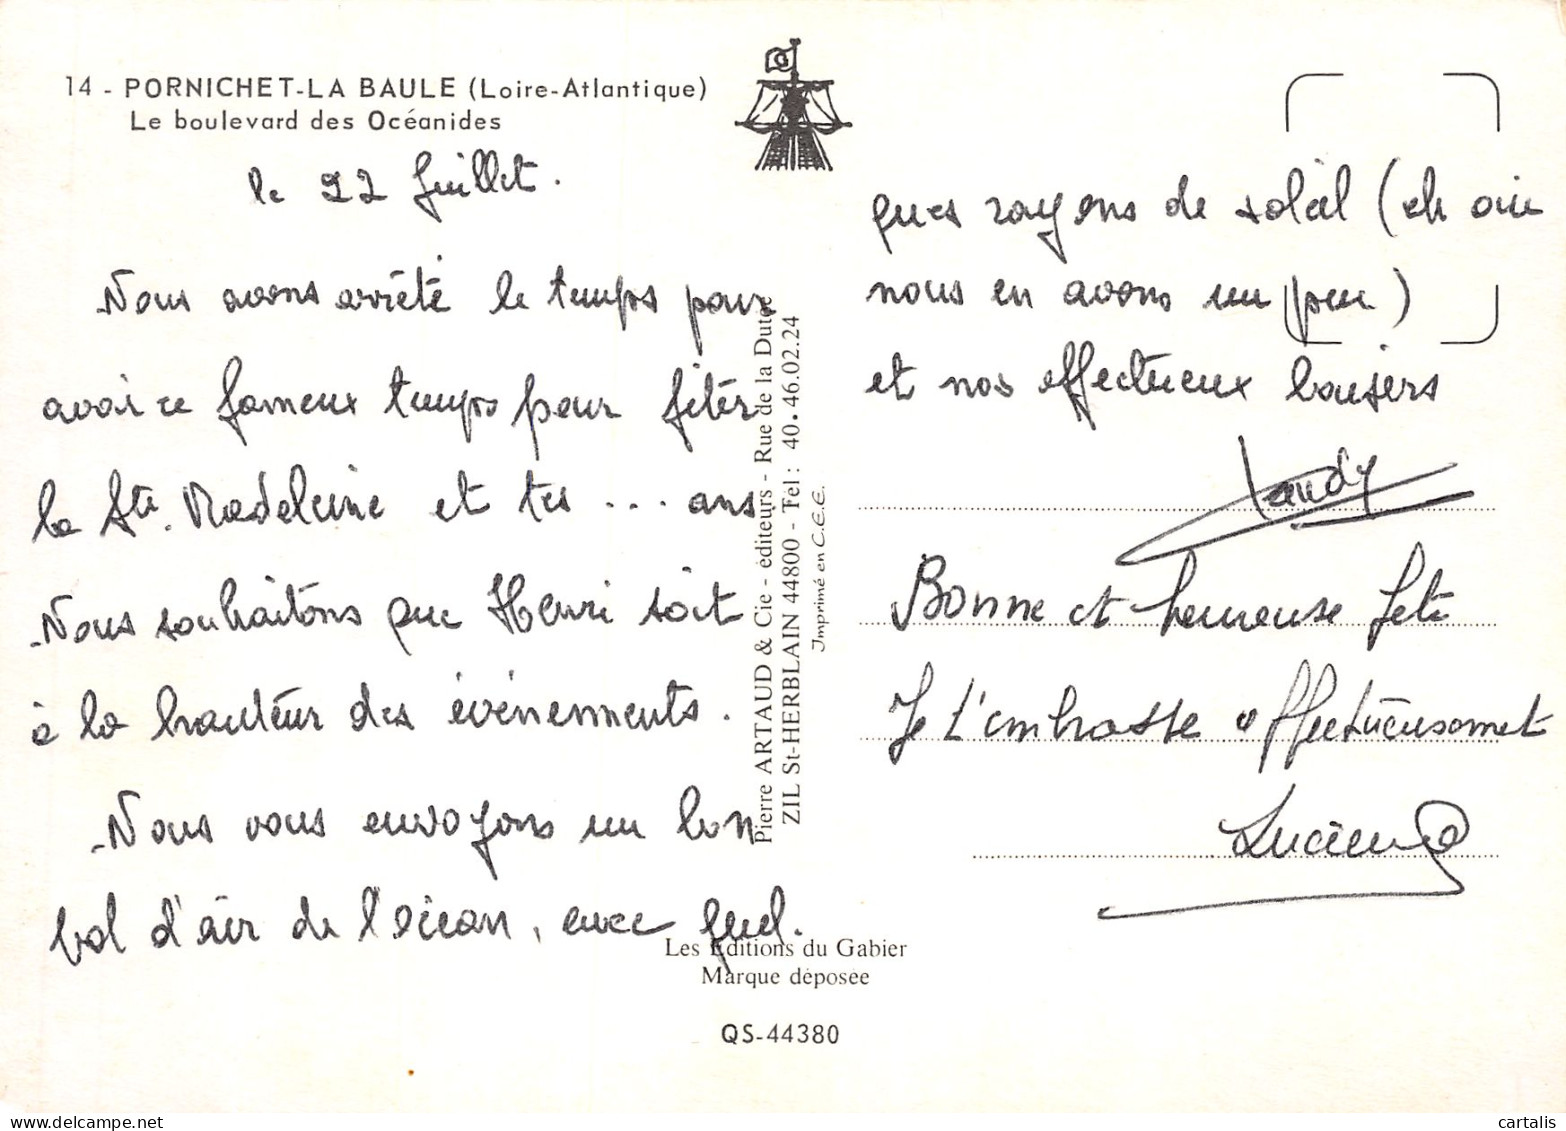 14 - PORNICHET-LA BAULE (Loire-Atlantique)
Le boulevard des Océanides
le 22 Juillet.
Nous avons arrêté le temps pour
avoir ce fameux temps pour fêter
la Ste. Madeleine et tes ... ans
Nous souhaitons que Henri soit
à la hauteur des événements.
Nous vous envoyons un bon
bol d'air de l'océan, avec quel-
ques rayons de soleil (eh oui
nous en avons un peu)
et nos affectueux baisers
Bonne et heureuse fête
Je t'embrasse affectueusement
Lucienne
Pierre ARTAUD & Cie - éditeurs - Rue de la Dutée
ZIL St-HERBLAIN 44800 - Tel : 40.46.02.24
Imprimé en C.E.E.
Les Editions du Gabier
Marque déposée
QS-44380
cartalis